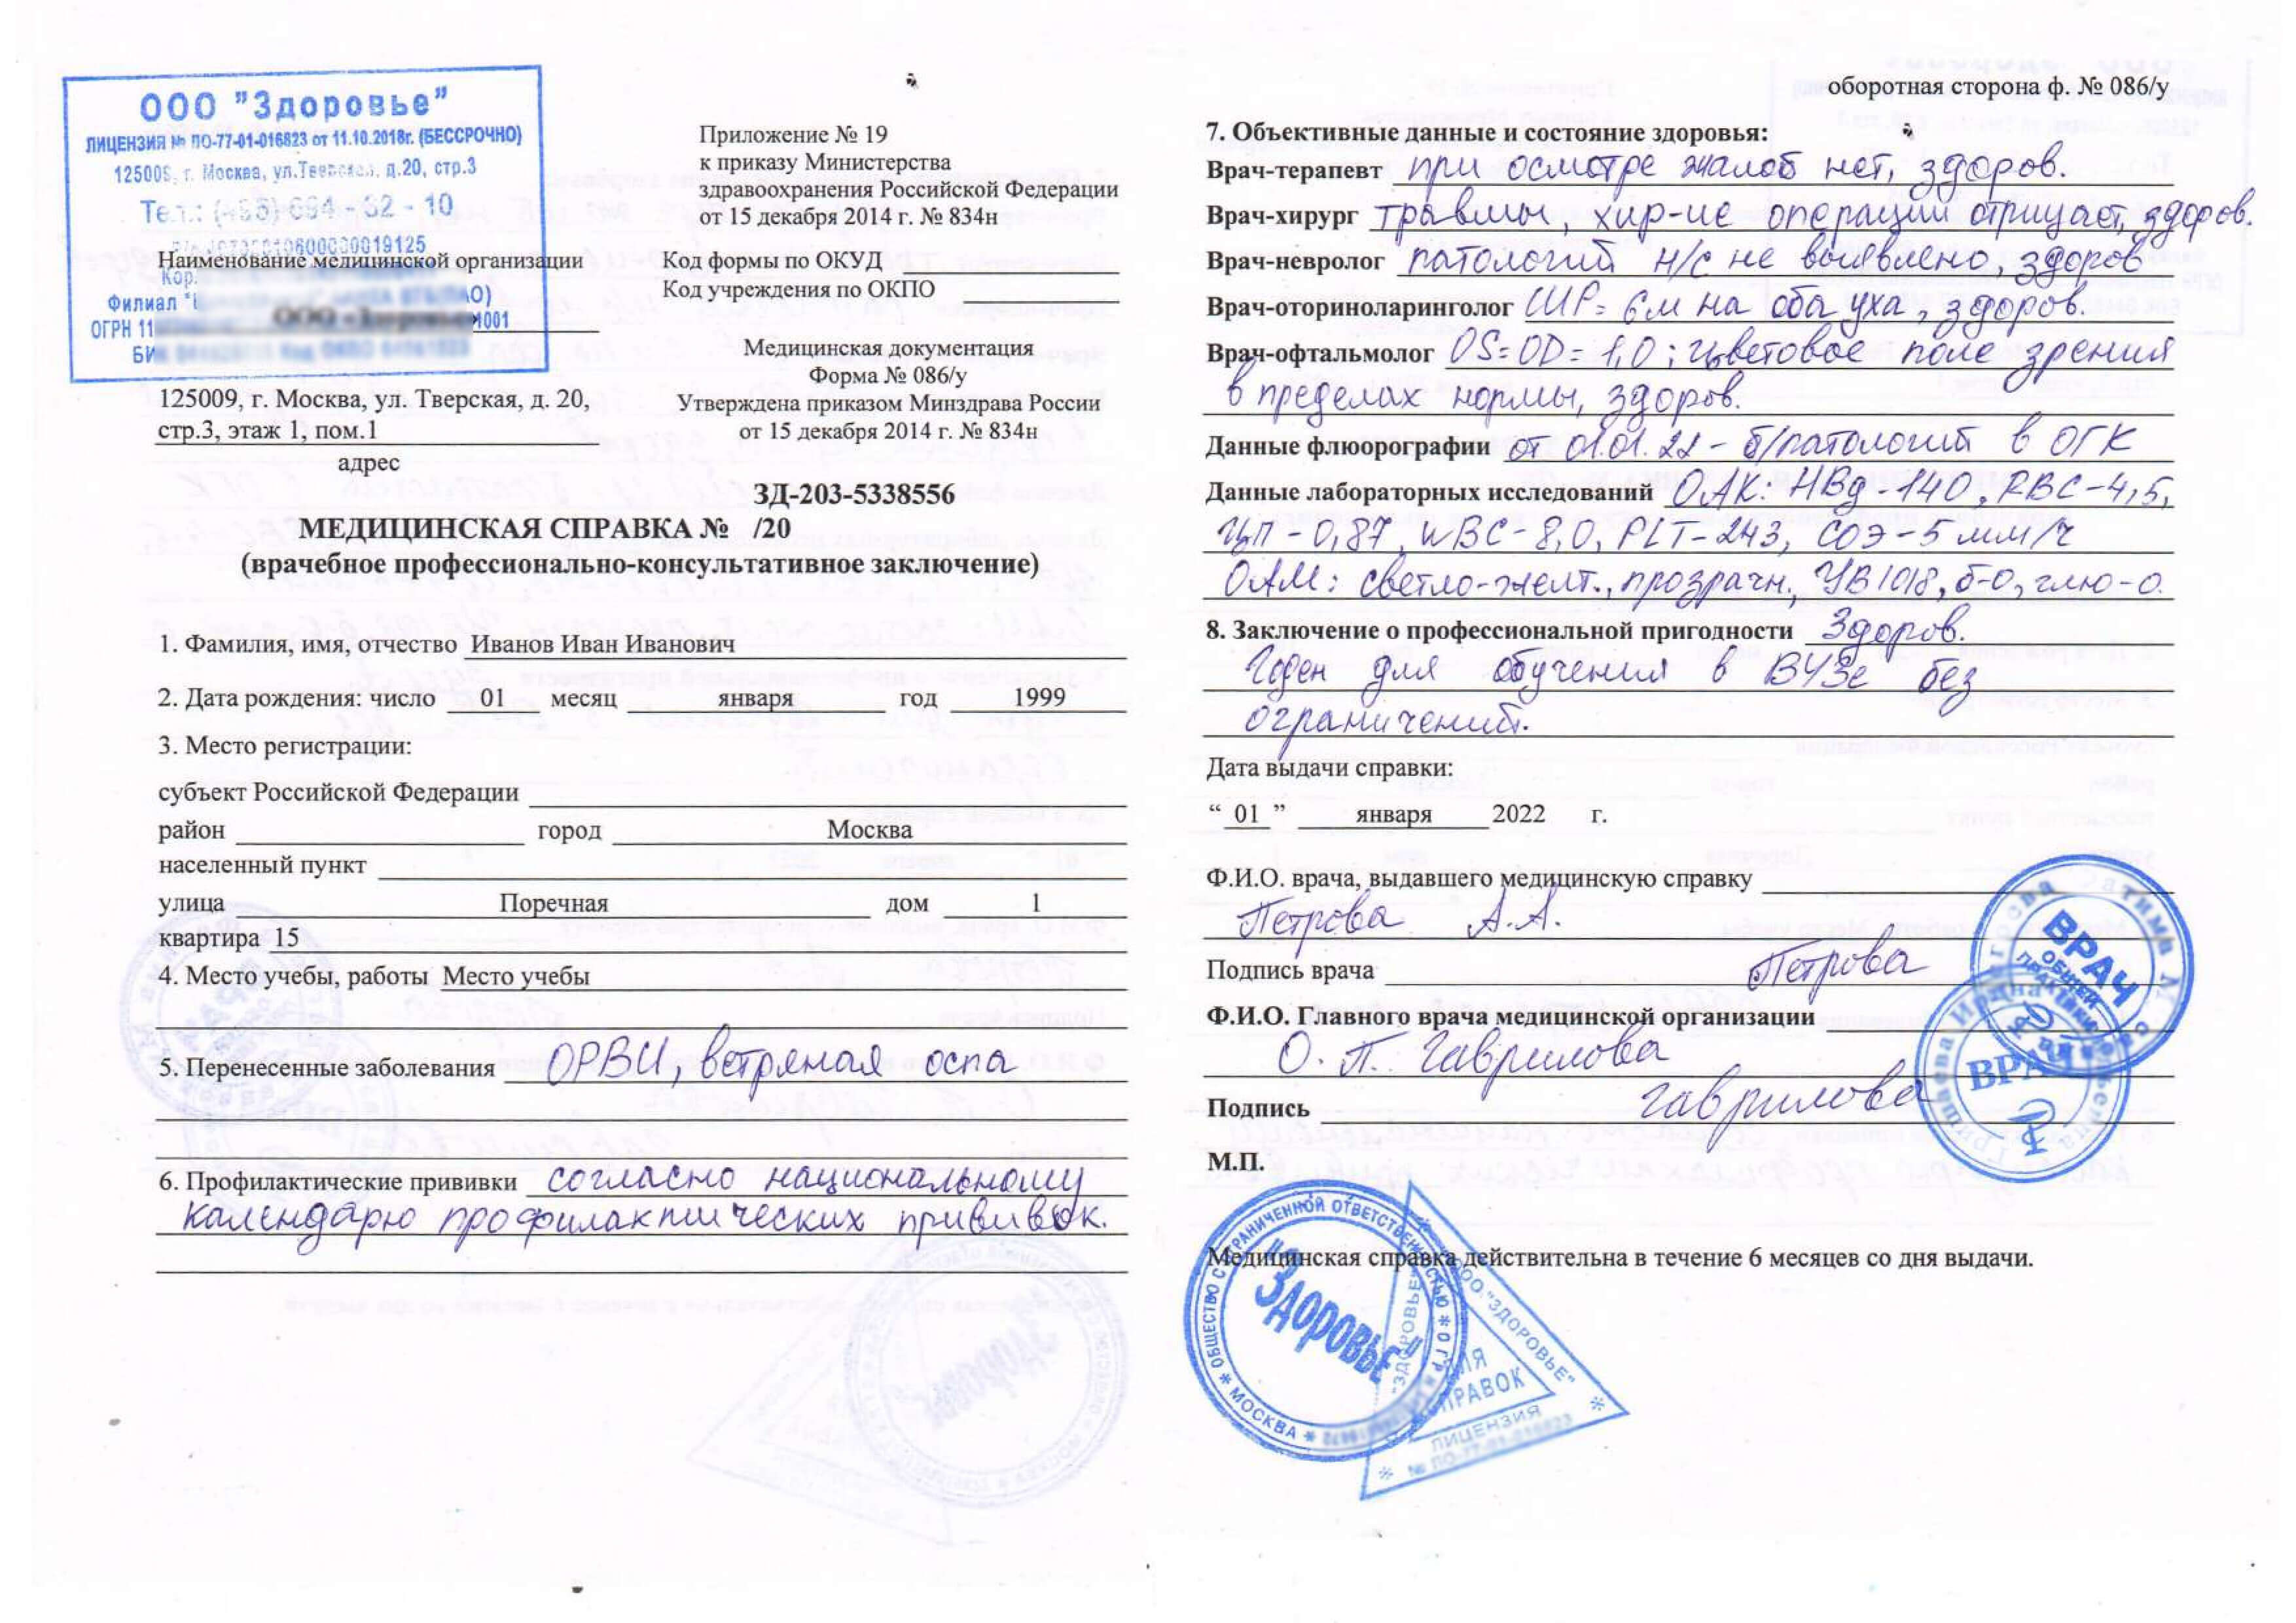 ООО "Здоровье"
ЛИЦЕНЗИЯ № ПО-77-01-016823 от 11.10.2018г. (БЕССРОЧНО)
г. Москва, ул. д.20, стр.3
Тел.:
Наименование медицинской организации
Кор.
Филиал
ОГРН
ООО «Здоровье»
125009, г. Москва, ул. Тверская, д. 20,
стр.3, этаж 1, пом.1
адрес
Приложение № 19
к приказу Министерства
здравоохранения Российской Федерации
от 15 декабря 2014 г. № 834н
Код формы по ОКУД
Код учреждения по ОКПО
Медицинская документация
Форма № 086/у
Утверждена приказом Минздрава России
от 15 декабря 2014 г. № 834н
ЗД-203-5338556
МЕДИЦИНСКАЯ СПРАВКА № /20
(врачебное профессионально-консультативное заключение)
1. Фамилия, имя, отчество Иванов Иван Иванович
2. Дата рождения: число 01 месяц января год 1999
3. Место регистрации:
субъект Российской Федерации
район город Москва
населенный пункт
улица Поречная дом 1
квартира 15
4. Место учебы, работы Место учебы
5. Перенесенные заболевания ОРВИ, ветряная оспа
6. Профилактические прививки согласно национальному
календарю профилактических прививок.
оборотная сторона ф. № 086/у
7. Объективные данные и состояние здоровья:
Врач-терапевт при осмотре жалоб нет, здоров.
Врач-хирург травмы, хир-ие операции отрицает, здоров.
Врач-невролог патологий н/с не выявлено, здоров
Врач-оториноларинголог ШР= 6м на оба уха, здоров.
Врач-офтальмолог OS=OD= 1,0; цветовое поле зрения
в пределах нормы, здоров.
Данные флюорографии от 01.01.22 - б/патологий в ОГК
Данные лабораторных исследований ОАК: HBg-140, RBC-4,5,
ЦП - 0,87, WBC-8,0, PLT-243, СОЭ-5 мм/ч
ОАМ: светло-желт., прозрачн., УВ1018, б-0, глю-0.
8. Заключение о профессиональной пригодности Здоров.
Годен для обучения в ВУЗе без
ограничений.
Дата выдачи справки:
“ 01 ” января 2022 г.
Ф.И.О. врача, выдавшего медицинскую справку
Петрова А.А.
Подпись врача Петрова
Ф.И.О. Главного врача медицинской организации
О. П. Гаврилова
Подпись Гаврилова
ВРАЧ
ОБЩЕЙ
ПРАКТИКИ
ВРАЧ
М.П.
Медицинская справка действительна в течение 6 месяцев со дня выдачи.
ОБЩЕСТВО С ОГРАНИЧЕННОЙ ОТВЕТСТВЕННОСТЬЮ * ОГРН
* МОСКВА *
"Здоровье"
ООО "ЗДОРОВЬЕ"
"ЗДОРОВЬЕ"
ДЛЯ
СПРАВОК
ЛИЦЕНЗИЯ
№ ПО-77-01-016823